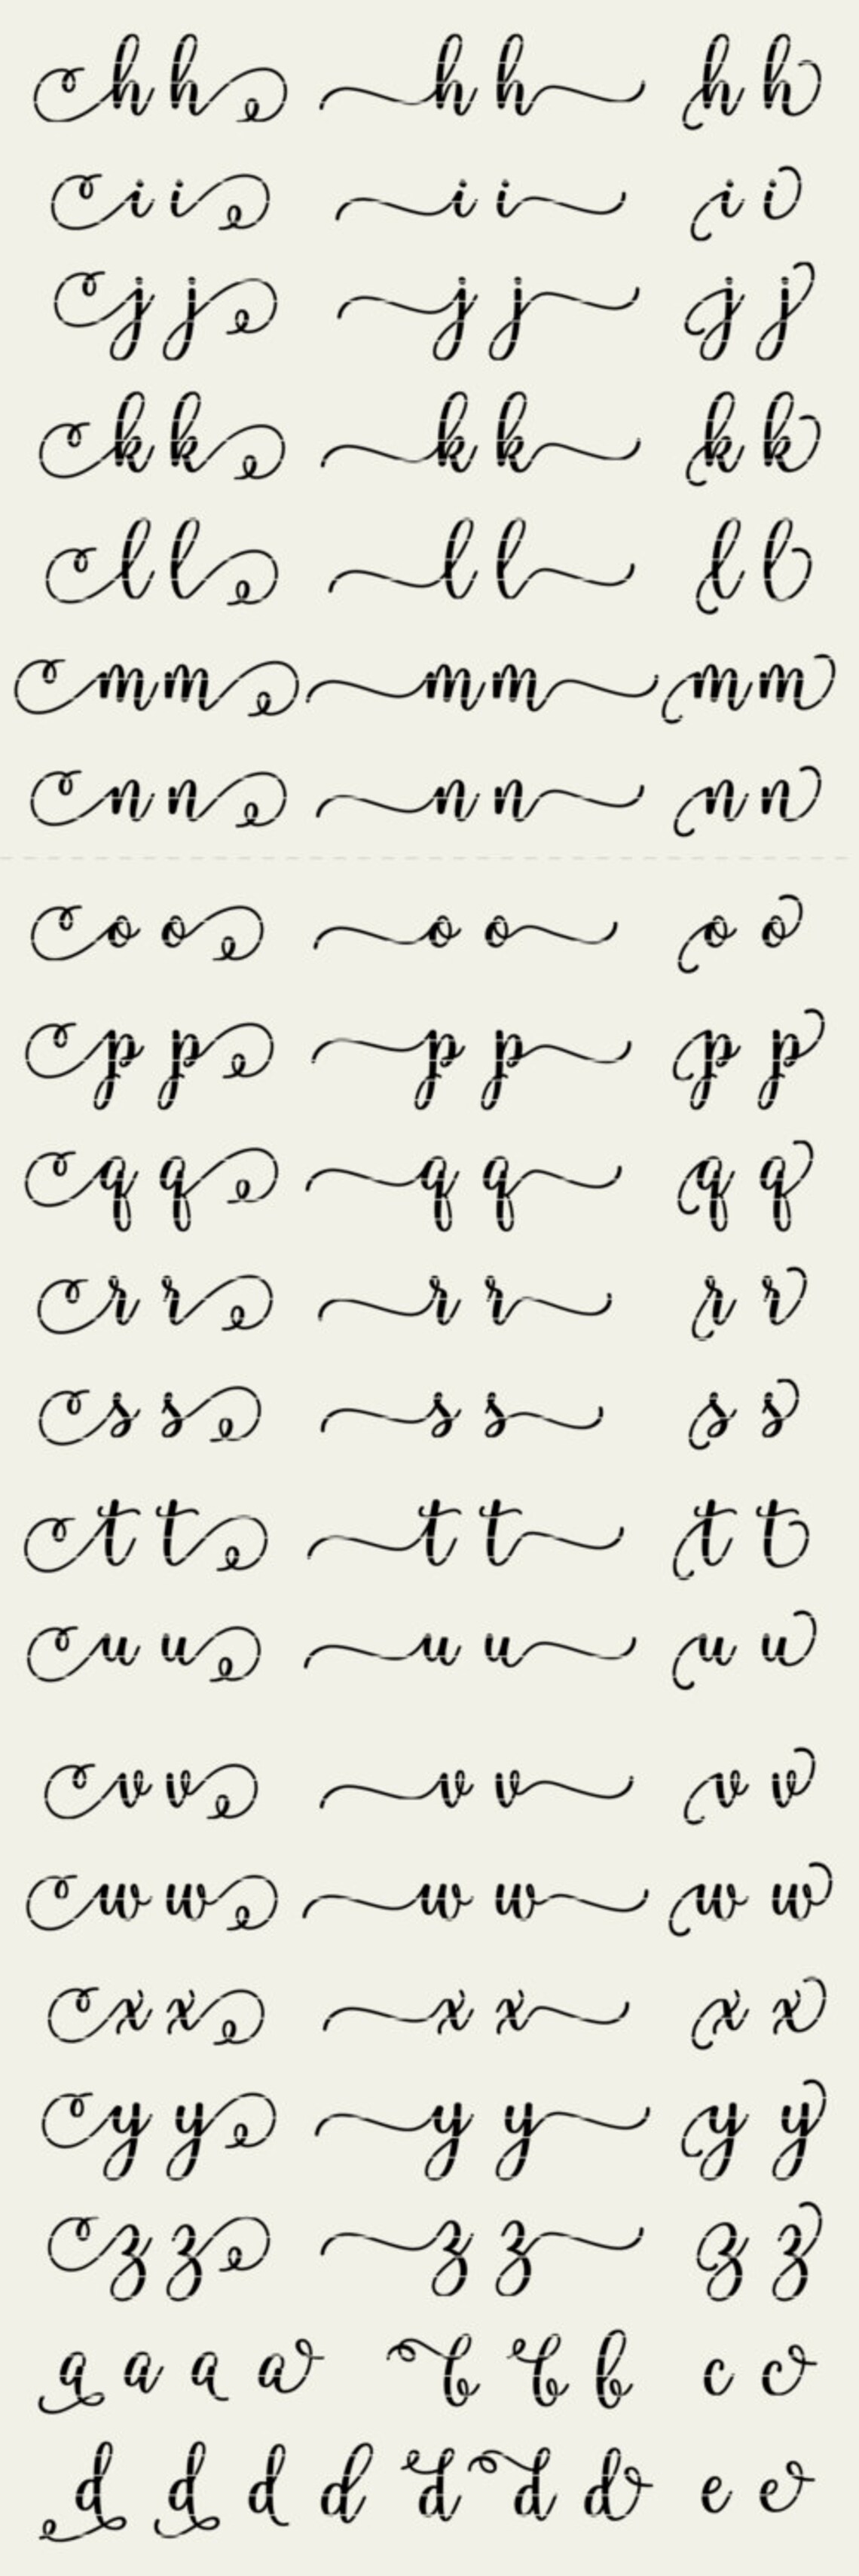 h h h h h h
i i i i i i
j j j j j j
k k k k k k
l l l l l l
m m m m m m
n n n n n n
o o o o o o
p p p p p p
q q q q q q
r r r r r r
s s s s s s
t t t t t t
u u u u u u
v v v v v v
w w w w w w
x x x x x x
y y y y y y
z z z z z z
a a a a b b b c c
d d d d d d d e e